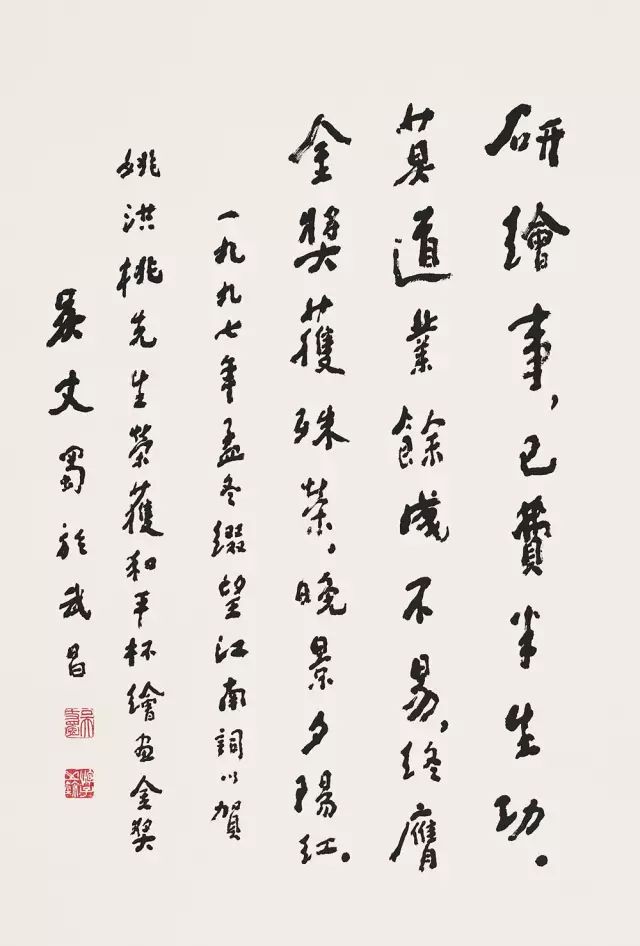 研繪事，已費半生功。
莫道業餘成不易，終膺
金獎獲殊榮，晚景夕陽紅。
一九九七年孟冬綴望江南詞以賀
姚洪桃先生榮獲和平杯繪画金獎
吴丈蜀於武昌